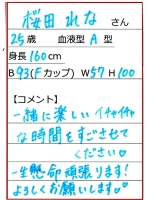 桜田 れな さん
25歳 血液型 A 型
身長 160cm
B 93(Fカップ) W57 H100
【コメント】
一緒に楽しいイチャイチャ
な時間をすごさせて
ください♡
一生懸命頑張ります!
よろしくお願いします♡